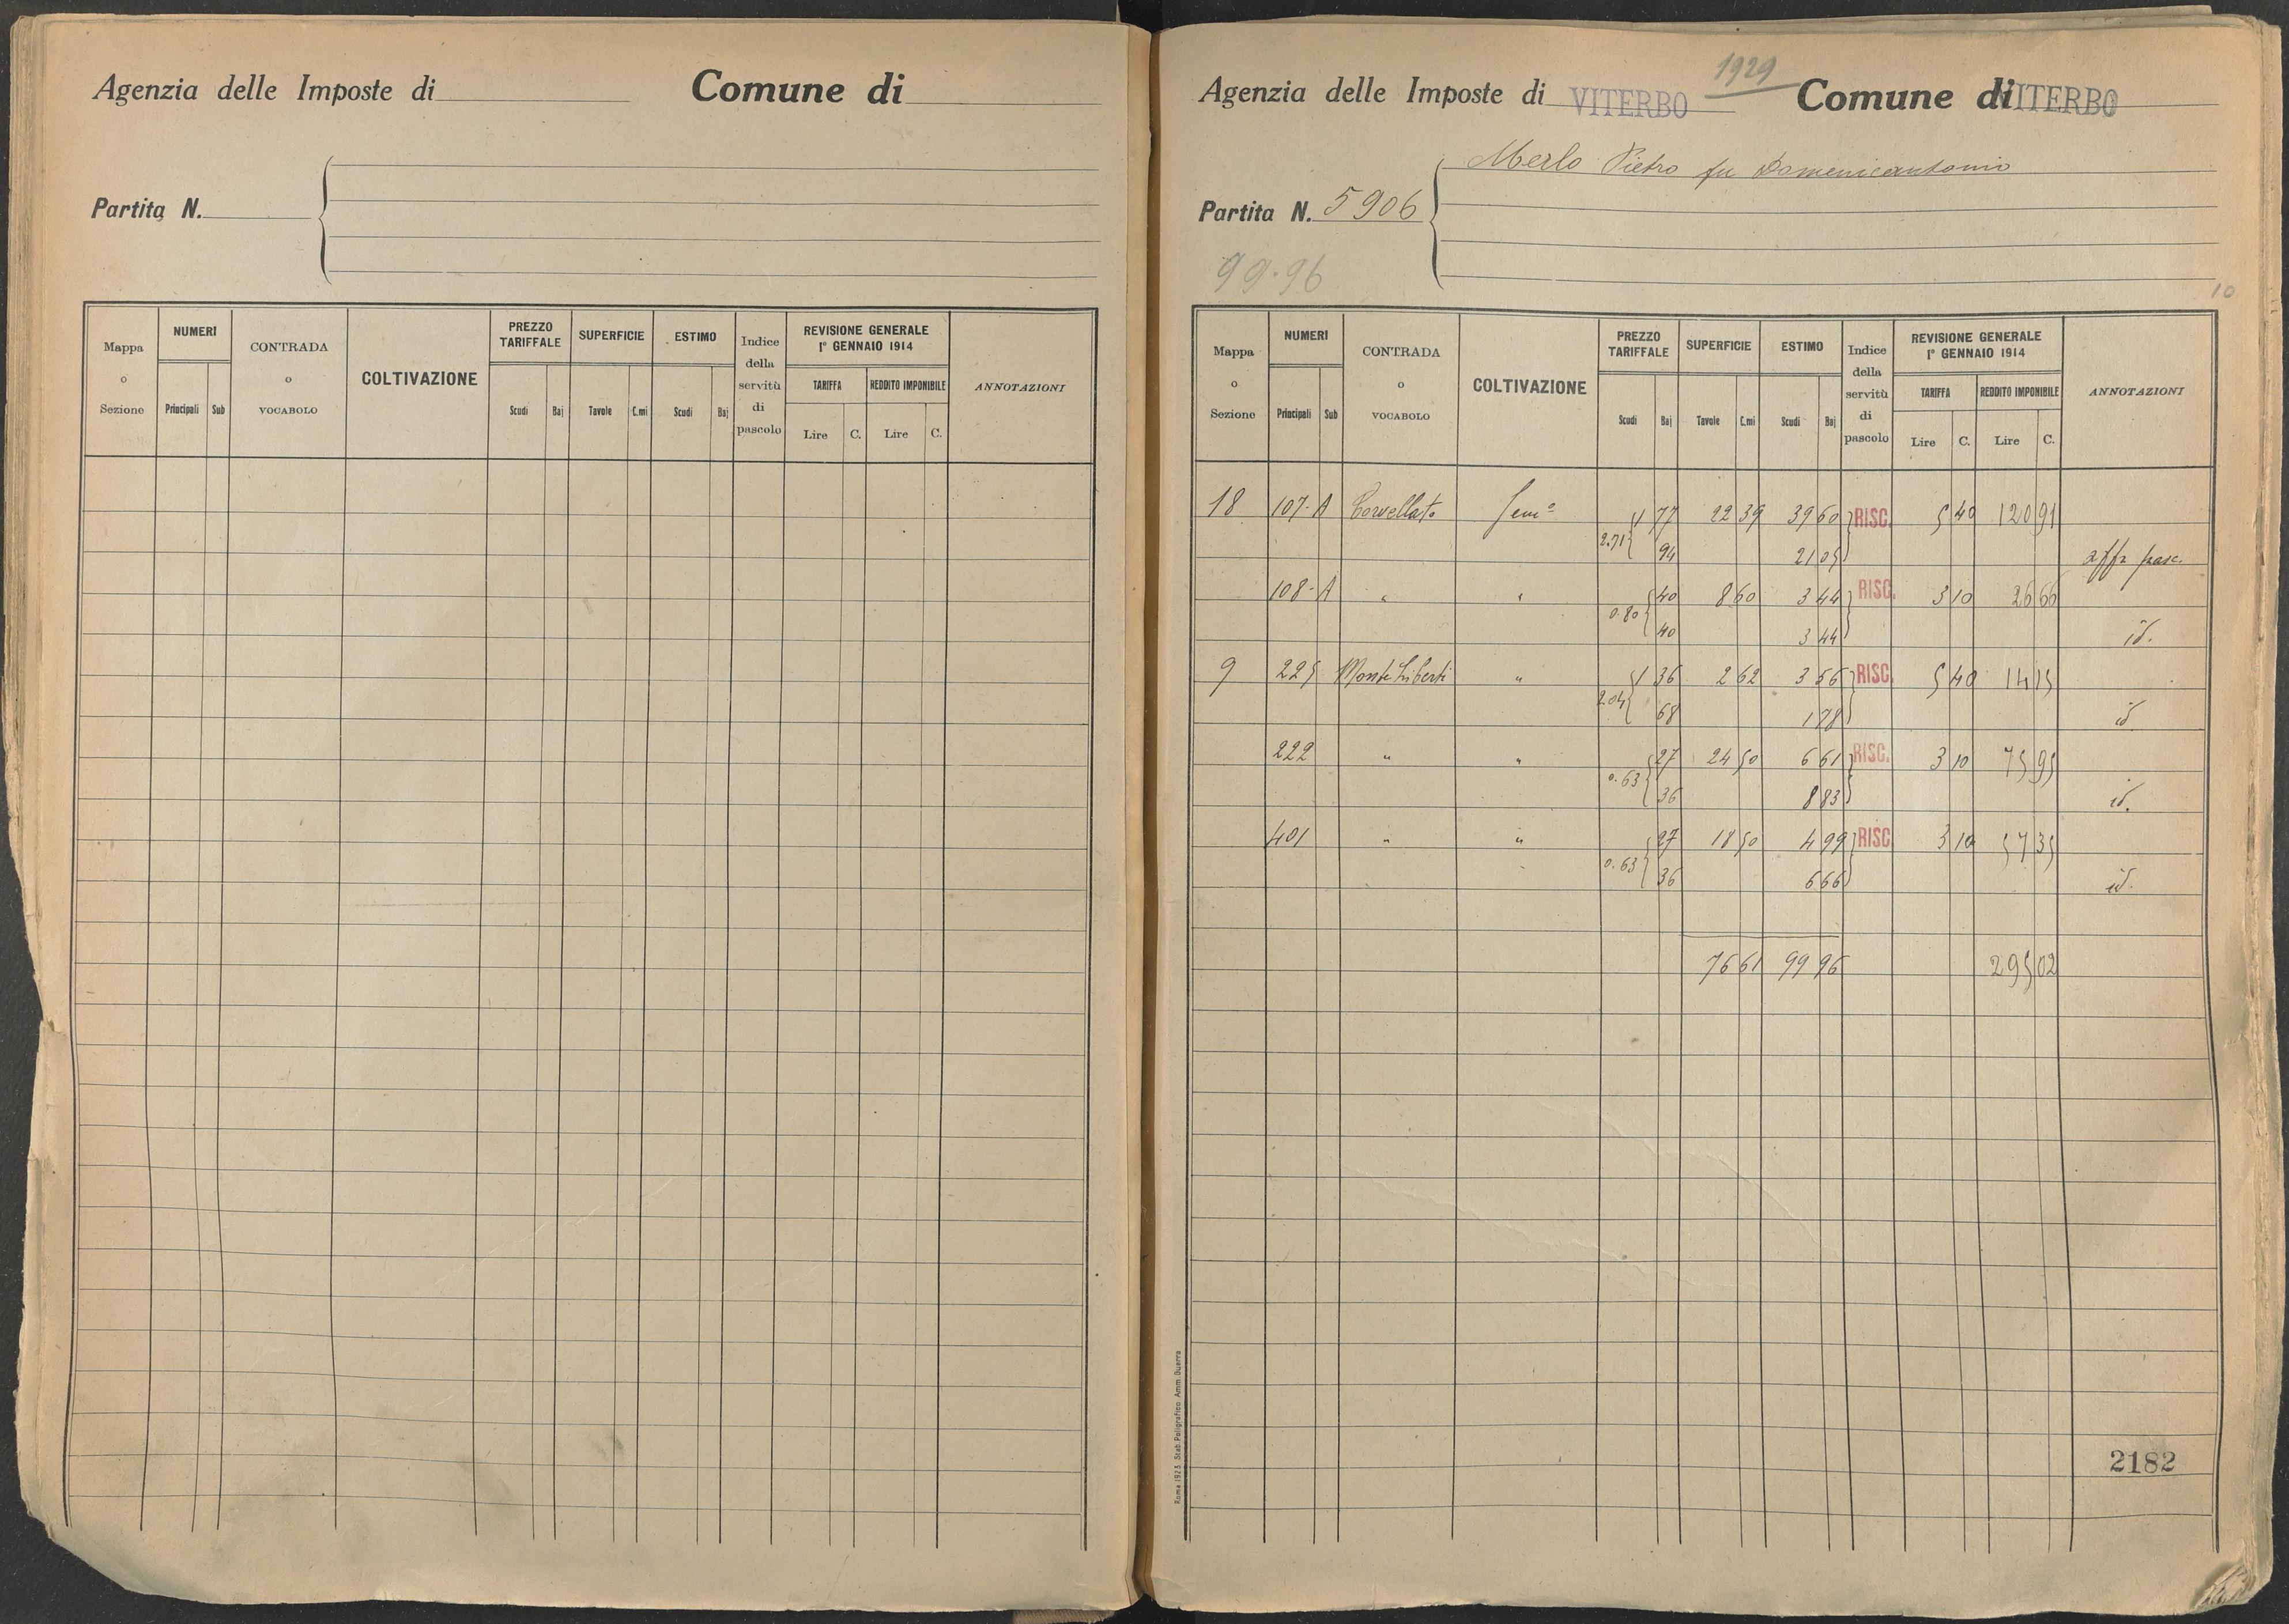 Agenzia delle Imposte di Comune di
Partita N.
Mappa o Sezione NUMERI Principali Sub CONTRADA o VOCABOLO COLTIVAZIONE PREZZO TARIFFALE Scudi Baj SUPERFICIE Tavole C.mi ESTIMO Scudi Baj Indice della servitù di pascolo REVISIONE GENERALE 1° GENNAIO 1914 TARIFFA Lire C. REDDITO IMPONIBILE Lire C. ANNOTAZIONI
1929
Agenzia delle Imposte di VITERBO Comune di VITERBO
Merlo Pietro fu Domenicantonio
Partita N. 5906
99.96
10
Mappa o Sezione NUMERI Principali Sub CONTRADA o VOCABOLO COLTIVAZIONE PREZZO TARIFFALE Scudi Baj SUPERFICIE Tavole C.mi ESTIMO Scudi Baj Indice della servitù di pascolo REVISIONE GENERALE 1° GENNAIO 1914 TARIFFA Lire C. REDDITO IMPONIBILE Lire C. ANNOTAZIONI
18 107-A Corvellato Sem° 1 77 22 39 39 60 RISC. 5 40 120 91
2.71 94 21 05 affr pasc.
108-A " " 40 8 60 3 44 RISC. 3 10 26 66
0.80 40 3 44 id.
9 225 Monte Liberti " 1 36 2 62 3 56 RISC. 5 40 14 15
2.04 68 1 78 id
222 " " 27 24 50 6 61 RISC. 3 10 75 95
0.63 36 8 83 id.
401 " " 27 18 50 4 99 RISC. 3 10 57 35
0.63 36 6 66 id.
76 61 99 96 295 02
2182
Roma 1923. Stab. Poligrafico Amm. Guerra